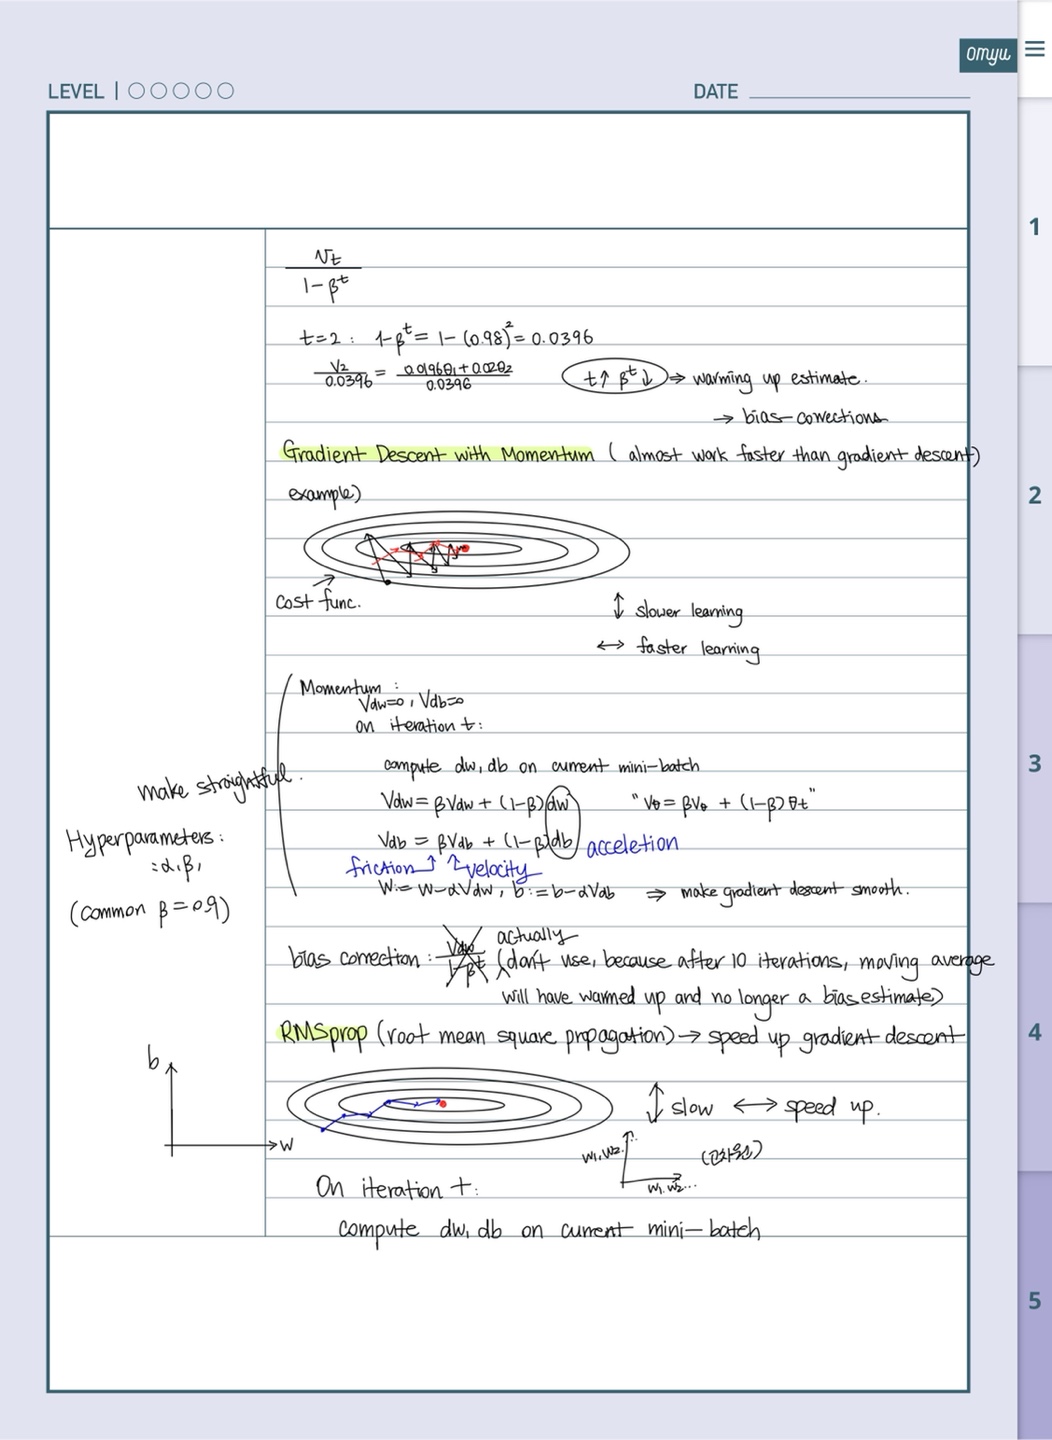 omyu
LEVEL | ○○○○○
DATE
1
2
3
4
5
Vt
1-β^t
t=2: 1-β^t = 1-(0.98)^2 = 0.0396
V2/0.0396 = 0.0196θ1+0.02θ2/0.0396
t↑ β^t↓ ⇒ warming up estimate.
→ bias corrections
Gradient Descent with Momentum ( almost work faster than gradient descent)
example)
cost func.
↕ slower learning
↔ faster learning
Momentum :
Vdw=0, Vdb=0
on iteration t:
compute dw, db on current mini-batch
make straightful.
Vdw = βVdw + (1-β)dw "Vθ = βVθ + (1-β)θt"
Hyperparameters:
:α,β,
(common β=0.9)
Vdb = βVdb + (1-β)db acceletion
friction↑ ↖velocity
W:= W-αVdw, b:=b-αVdb ⇒ make gradient descent smooth.
actually
bias correction : Vdw/1-β^t (don't use, because after 10 iterations, moving average
will have warmed up and no longer a bias estimate)
RMSprop (root mean square propagation) → speed up gradient descent
b
w
↕ slow ↔ speed up.
W1, W2..
W1, W2...
(고차원)
On iteration t:
compute dw, db on current mini-batch